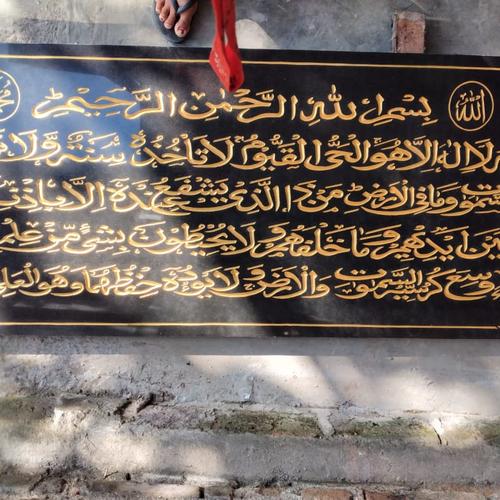 الله
بِسْمِ اللهِ الرَّحْمٰنِ الرَّحِيْمِ
لَا اِلٰهَ اِلَّا هُوَ الْحَیُّ الْقَيُّوْمُ لَا تَاْخُذُهٗ سِنَةٌ وَّلَا
وَمَا فِی الْاَرْضِ مَنْ ذَا الَّذِیْ يَشْفَعُ عِنْدَهٗ اِلَّا بِاِذْنِ
بَيْنَ اَيْدِيْهِمْ وَمَا خَلْفَهُمْ وَلَا يُحِيْطُوْنَ بِشَیْءٍ مِّنْ عِلْمِ
وَسِعَ كُرْسِيُّهُ السَّمٰوٰتِ وَالْاَرْضَ وَلَا يَئُوْدُهٗ حِفْظُهُمَا وَهُوَ